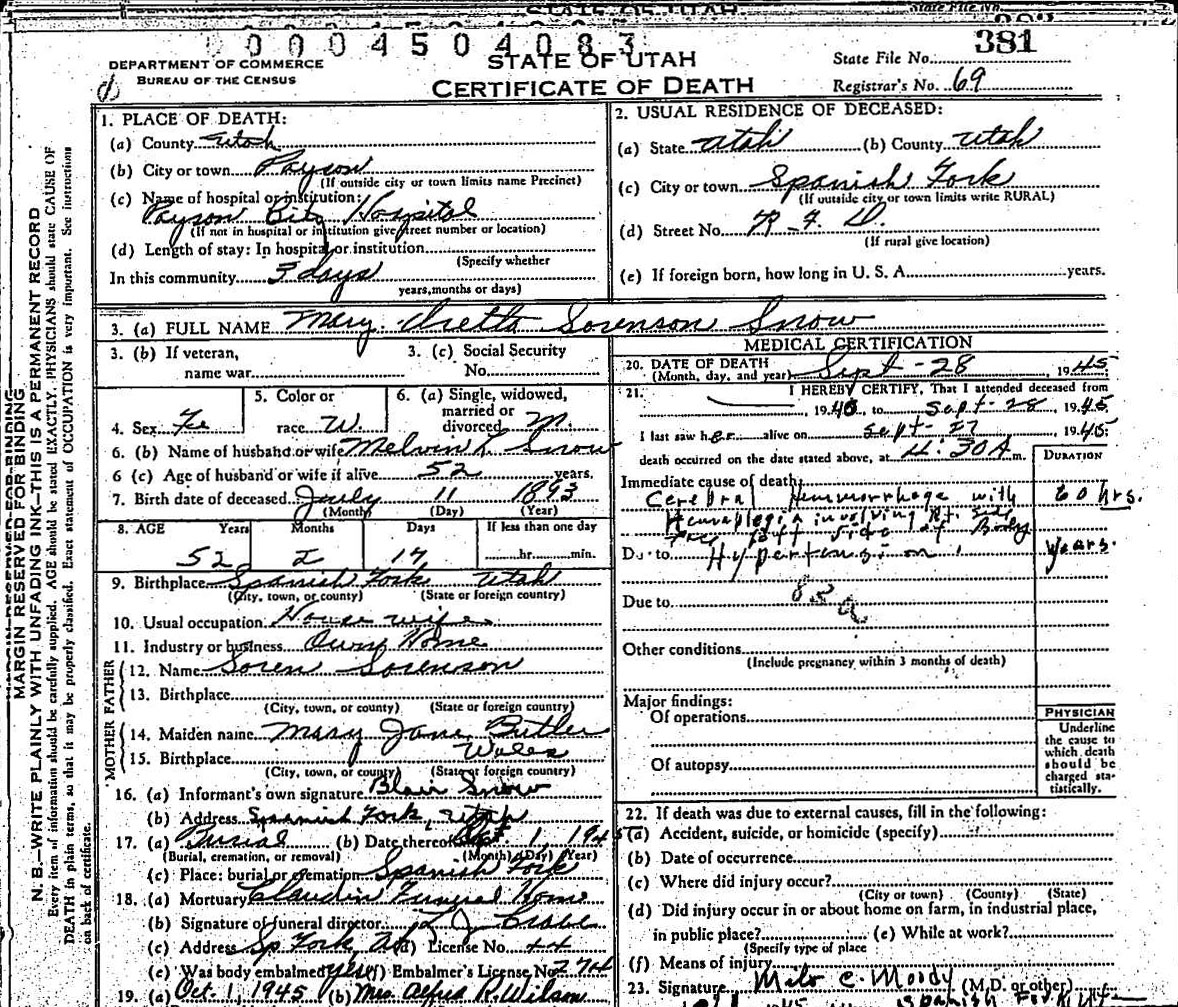 STATE OF UTAH
State File No.
0004504083
381
DEPARTMENT OF COMMERCE
BUREAU OF THE CENSUS
STATE OF UTAH
CERTIFICATE OF DEATH
State File No.
Registrar's No. 69
MARGIN RESERVED FOR BINDING
N. B.—WRITE PLAINLY WITH UNFADING INK—THIS IS A PERMANENT RECORD
Every item of information should be carefully supplied. AGE should be stated EXACTLY. PHYSICIANS should state CAUSE OF
DEATH in plain terms, so that it may be properly classified. Exact statement of OCCUPATION is very important. See instructions
on back of certificate.
1. PLACE OF DEATH:
(a) County Utah
(b) City or town Payson
(If outside city or town limits name Precinct)
(c) Name of hospital or institution:
Payson City Hospital
(If not in hospital or institution give street number or location)
(d) Length of stay: In hospital or institution
(Specify whether
In this community 3 days
years, months or days)
2. USUAL RESIDENCE OF DECEASED:
(a) State Utah (b) County Utah
(c) City or town Spanish Fork
(If outside city or town limits write RURAL)
(d) Street No. R. F. D.
(If rural give location)
(e) If foreign born, how long in U. S. A. years.
3. (a) FULL NAME Mary Sorenson Snow
3. (b) If veteran,
name war
3. (c) Social Security
No.
4. Sex Fe
5. Color or
race W.
6. (a) Single, widowed,
married or
divorced M.
6. (b) Name of husband or wife Melvin L. Snow
6 (c) Age of husband or wife if alive 52 years.
7. Birth date of deceased July 11 1893
(Month) (Day) (Year)
8. AGE Years Months Days If less than one day
52 2 17 hr. min.
9. Birthplace Spanish Fork Utah
(City, town, or county) (State or foreign country)
10. Usual occupation House wife
11. Industry or business Own Home
FATHER
12. Name Soren Sorenson
13. Birthplace
(City, town, or county) (State or foreign country)
MOTHER
14. Maiden name Mary Jane Butler
15. Birthplace Wales
(City, town, or county) (State or foreign country)
16. (a) Informant's own signature Blair Snow
(b) Address Spanish Fork, Utah
17. (a) Burial (b) Date thereof Oct. 1, 1945
(Burial, cremation, or removal) (Month) (Day) (Year)
(c) Place: burial or cremation Spanish Fork
18. (a) Mortuary Claudin Funeral Home
(b) Signature of funeral director
(c) Address Sp. Fork, (d) License No. 44
(e) Was body embalmed yes (f) Embalmer's License No. 274
19. (a) Oct. 1, 1945 (b) Mrs. Alfred R. Wilson
MEDICAL CERTIFICATION
20. DATE OF DEATH
(Month, day, and year) Sept - 28, 1945
21. I HEREBY CERTIFY, That I attended deceased from
, 1940, to Sept - 28, 1945
I last saw her alive on Sept - 27 1945
death occurred on the date stated above, at 4:30 A m.
DURATION
Immediate cause of death
Cerebral Hemorrhage with 60 hrs.
Hemiplegia involving Rt. side
Left side of Body
Due to Hypertension years.
Due to
83a
Other conditions
(Include pregnancy within 3 months of death)
Major findings:
Of operations
Of autopsy
PHYSICIAN
Underline
the cause to
which death
should be
charged sta-
tistically.
22. If death was due to external causes, fill in the following:
(a) Accident, suicide, or homicide (specify)
(b) Date of occurrence
(c) Where did injury occur?
(City or town) (County) (State)
(d) Did injury occur in or about home on farm, in industrial place,
in public place? (e) While at work?
(Specify type of place
(f) Means of injury
23. Signature Milo C. Moody (M.D. or other)
1945 Spanish Fork Ut.